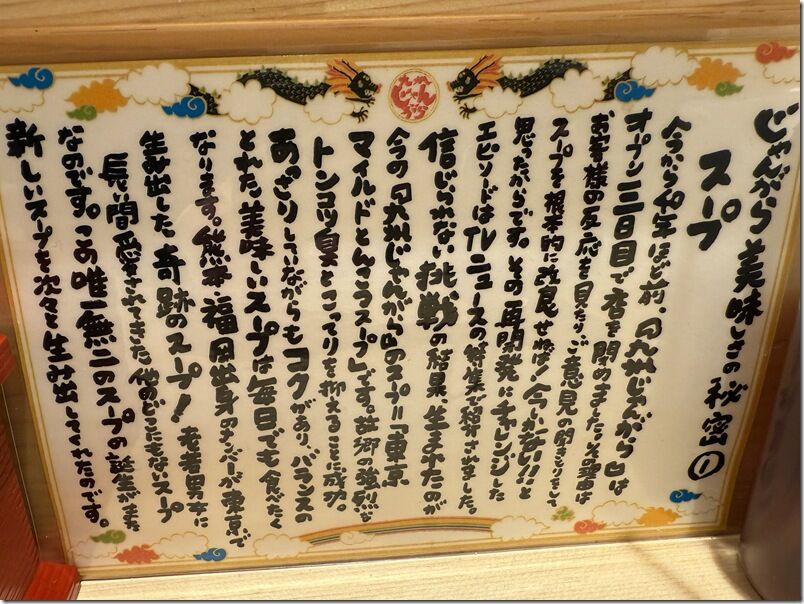 じゃんがら美味しさの秘密①
スープ
今から40年ほど前、「九州じゃんがら」は
オープン三日目で店を閉めました。その理由は
お客様の反応を見たり、ご意見の聞きとりをして
スープを根本的に改良せねば!今しかない!!と
思ったからです。その再開発にチャレンジした
エピソードはTVニュースの特集で紹介されました。
信じられない挑戦の結果、生まれたのが
今の「九州じゃんがら」のスープ=「東京
マイルドとんこつスープ」です。故郷の強烈な
トンコツ臭とこってりを抑えることに成功。
あっさりしていながらもコクがあり、バランスの
とれた美味しいスープは毎日でも食べたく
なります。熊本・福岡出身のメンバーが東京で
生み出した奇跡のスープ!老若男女に
長い間愛をされてきた他のどこにもないスープ
なのです。この唯一無二のスープの誕生がまた
新しいスープを次々と生み出してくれたのです。
じゃんがら